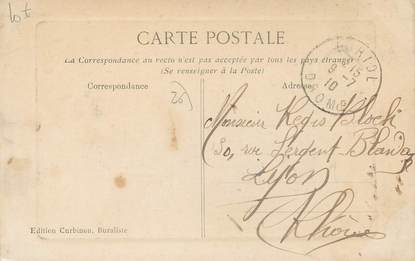 lot
CARTE POSTALE
La Correspondance au recto n'est pas acceptée par tous les pays étrangers
(Se renseigner à la Poste)
Correspondance
Adresse
20
Monsieur Regis Bloch
30, rue Sergent-Blanda
Lyon
Rhône
Edition Curbinon, Buraliste